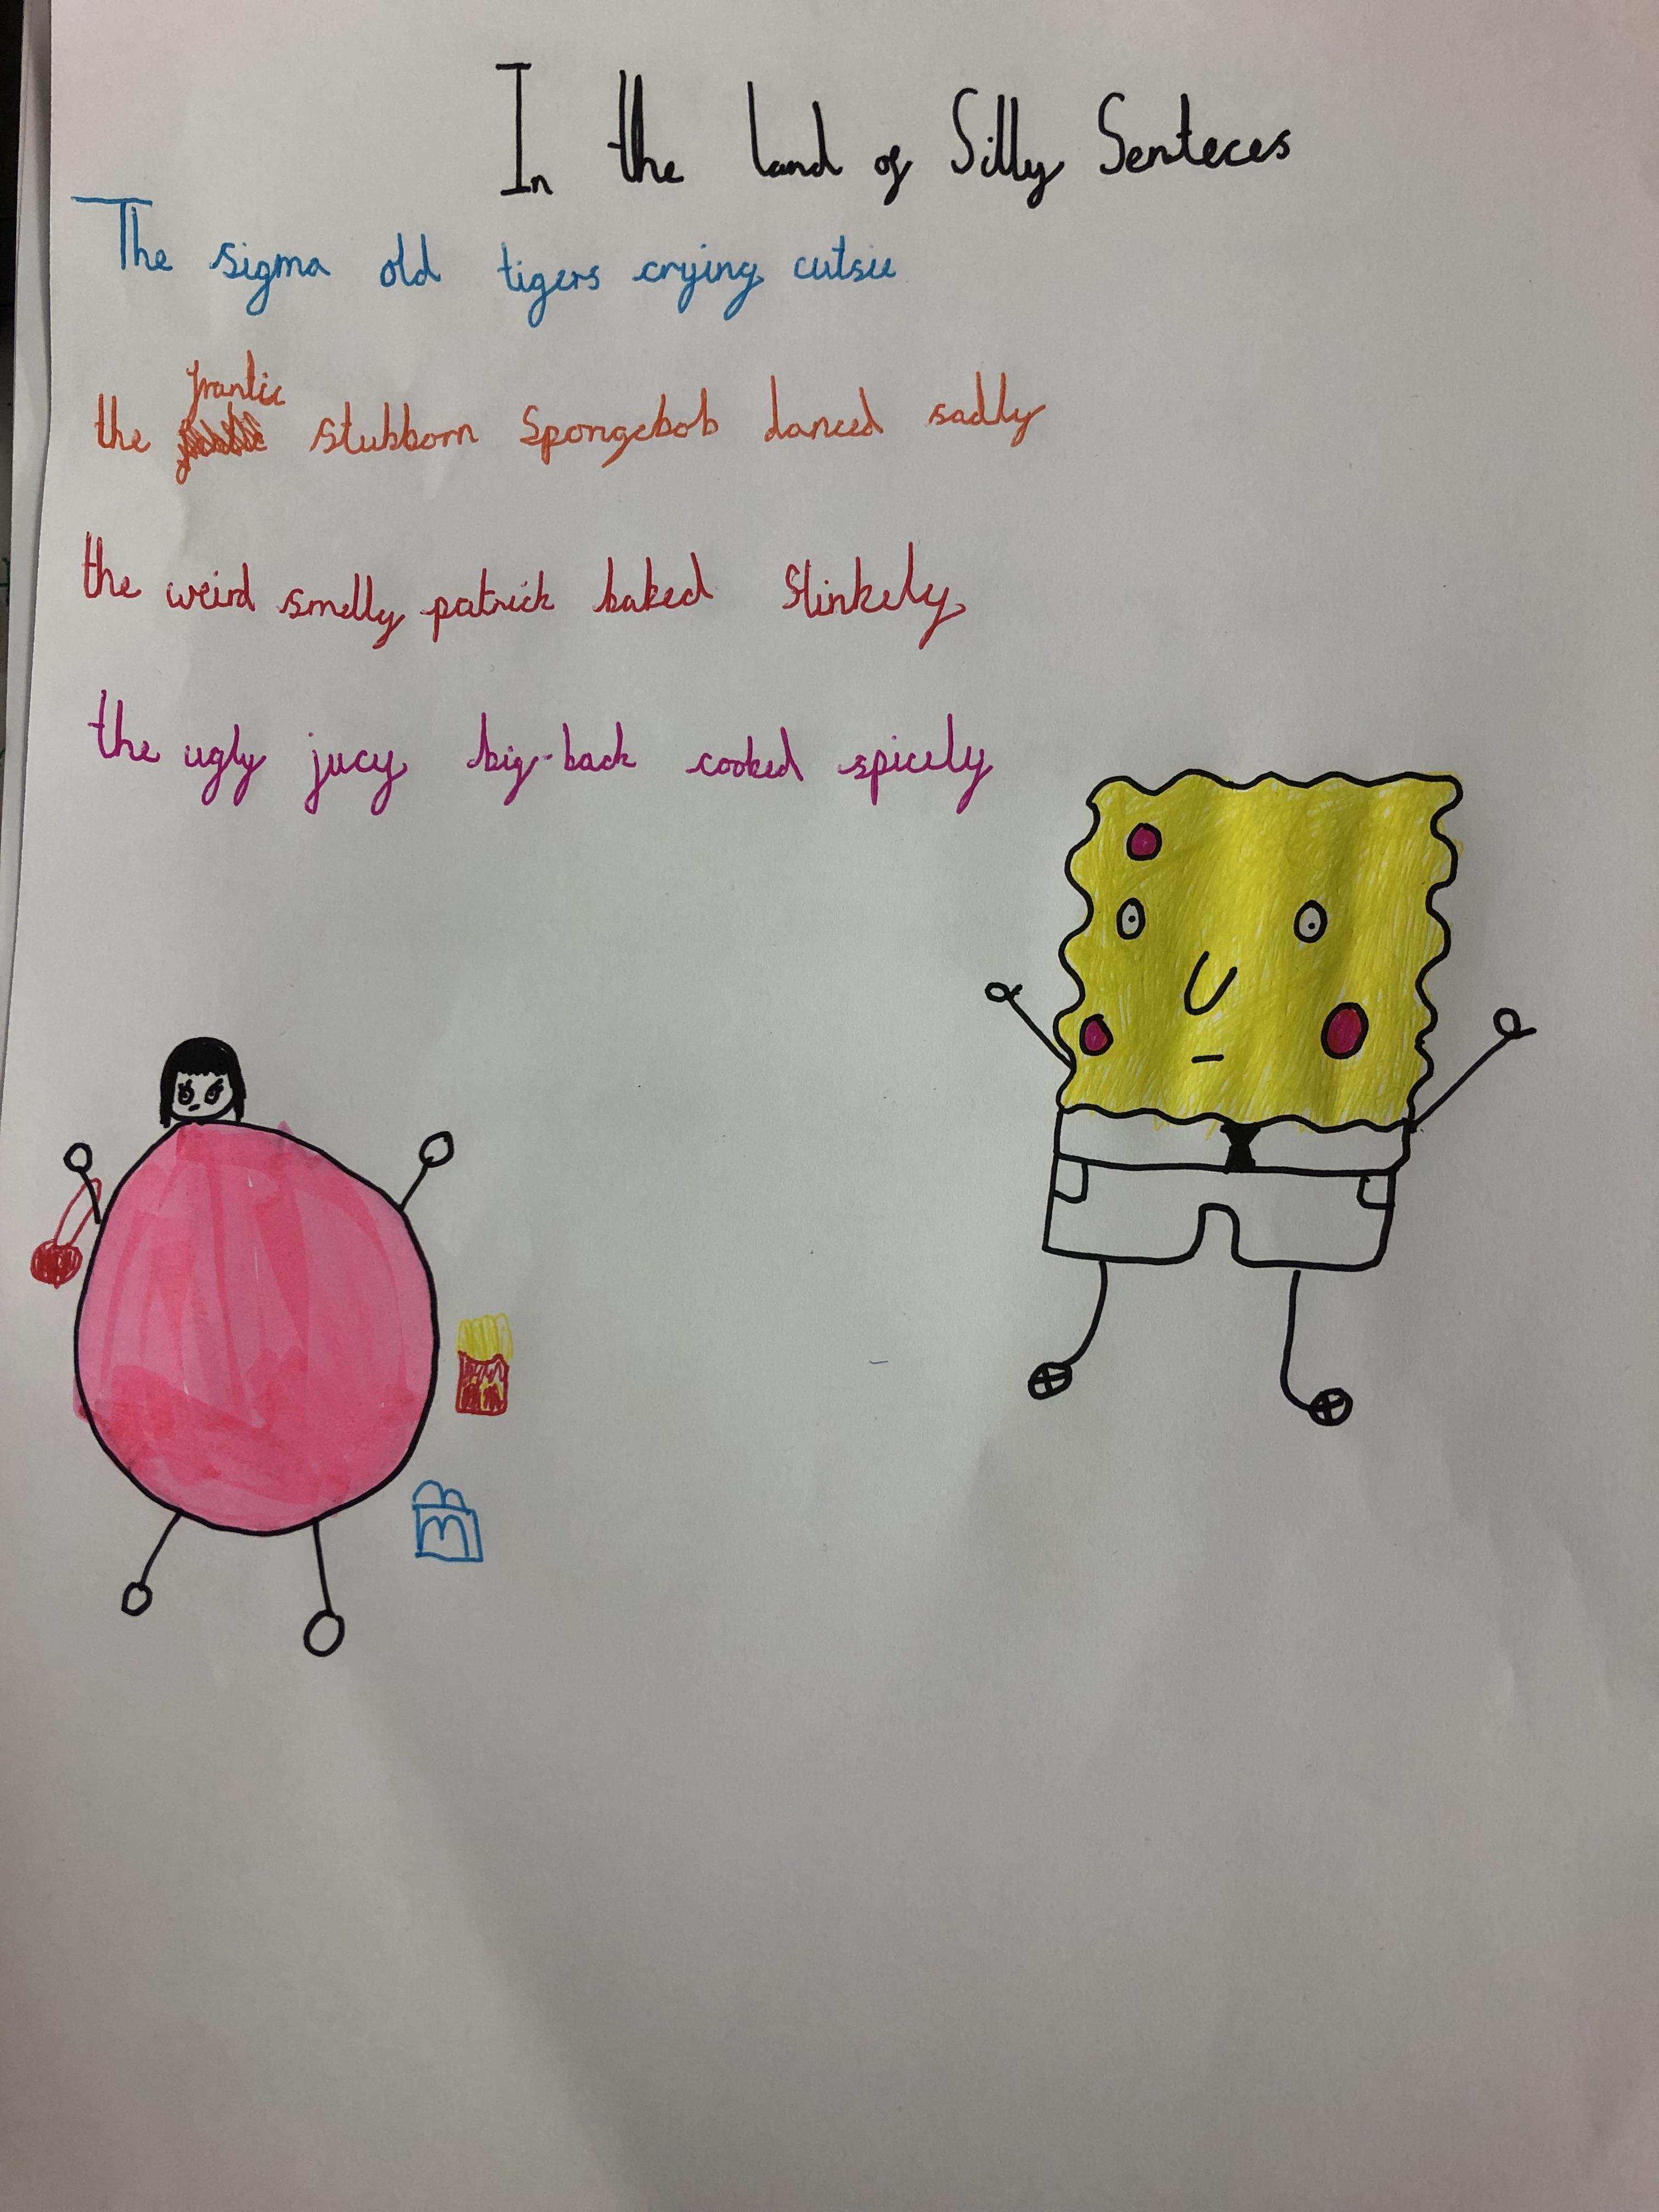 In the land of Silly Senteces
The sigma old tigers crying cutsie
the frantic stubborn Spongebob danced sadly
the weird smelly patrick baked Stinkely
the ugly jucy big-back cooked spicely